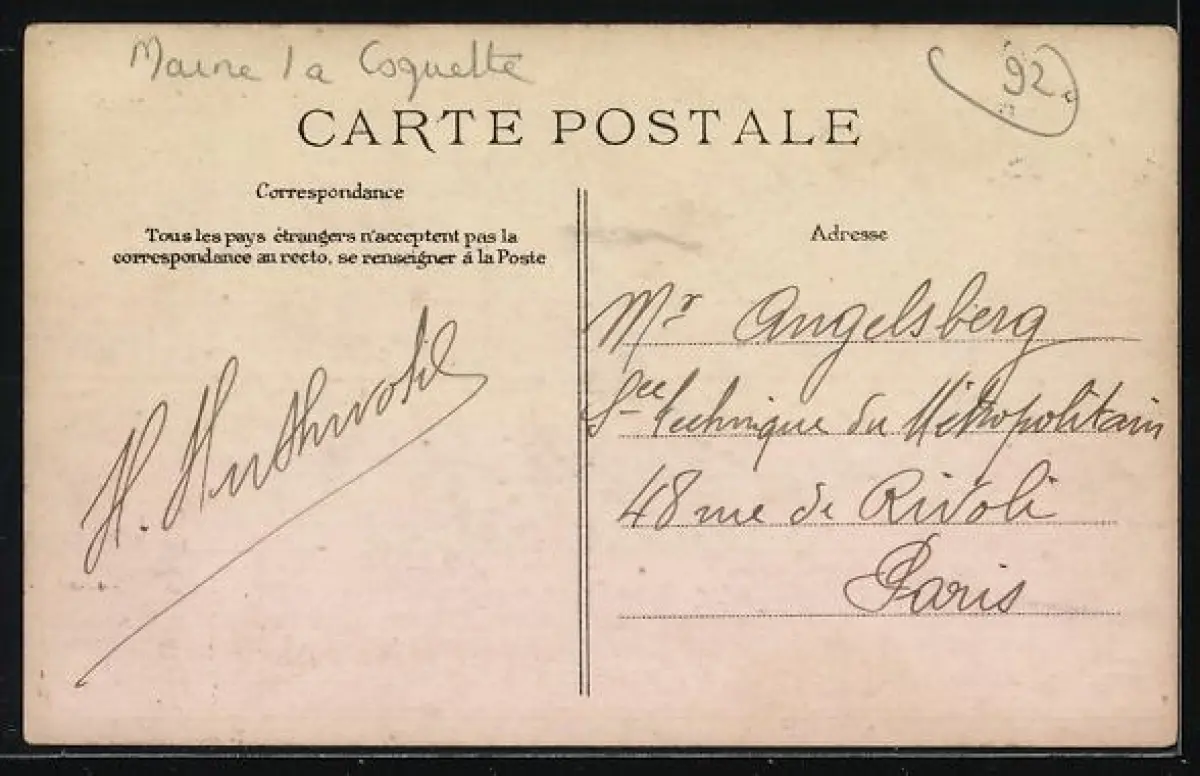 Marne la Coquette
92
CARTE POSTALE
Correspondance
Tous les pays étrangers n'acceptent pas la
correspondance au recto, se renseigner à la Poste
Adresse
Mr Angelsberg
Sce technique du Métropolitain
48 rue de Rivoli
Paris
H.